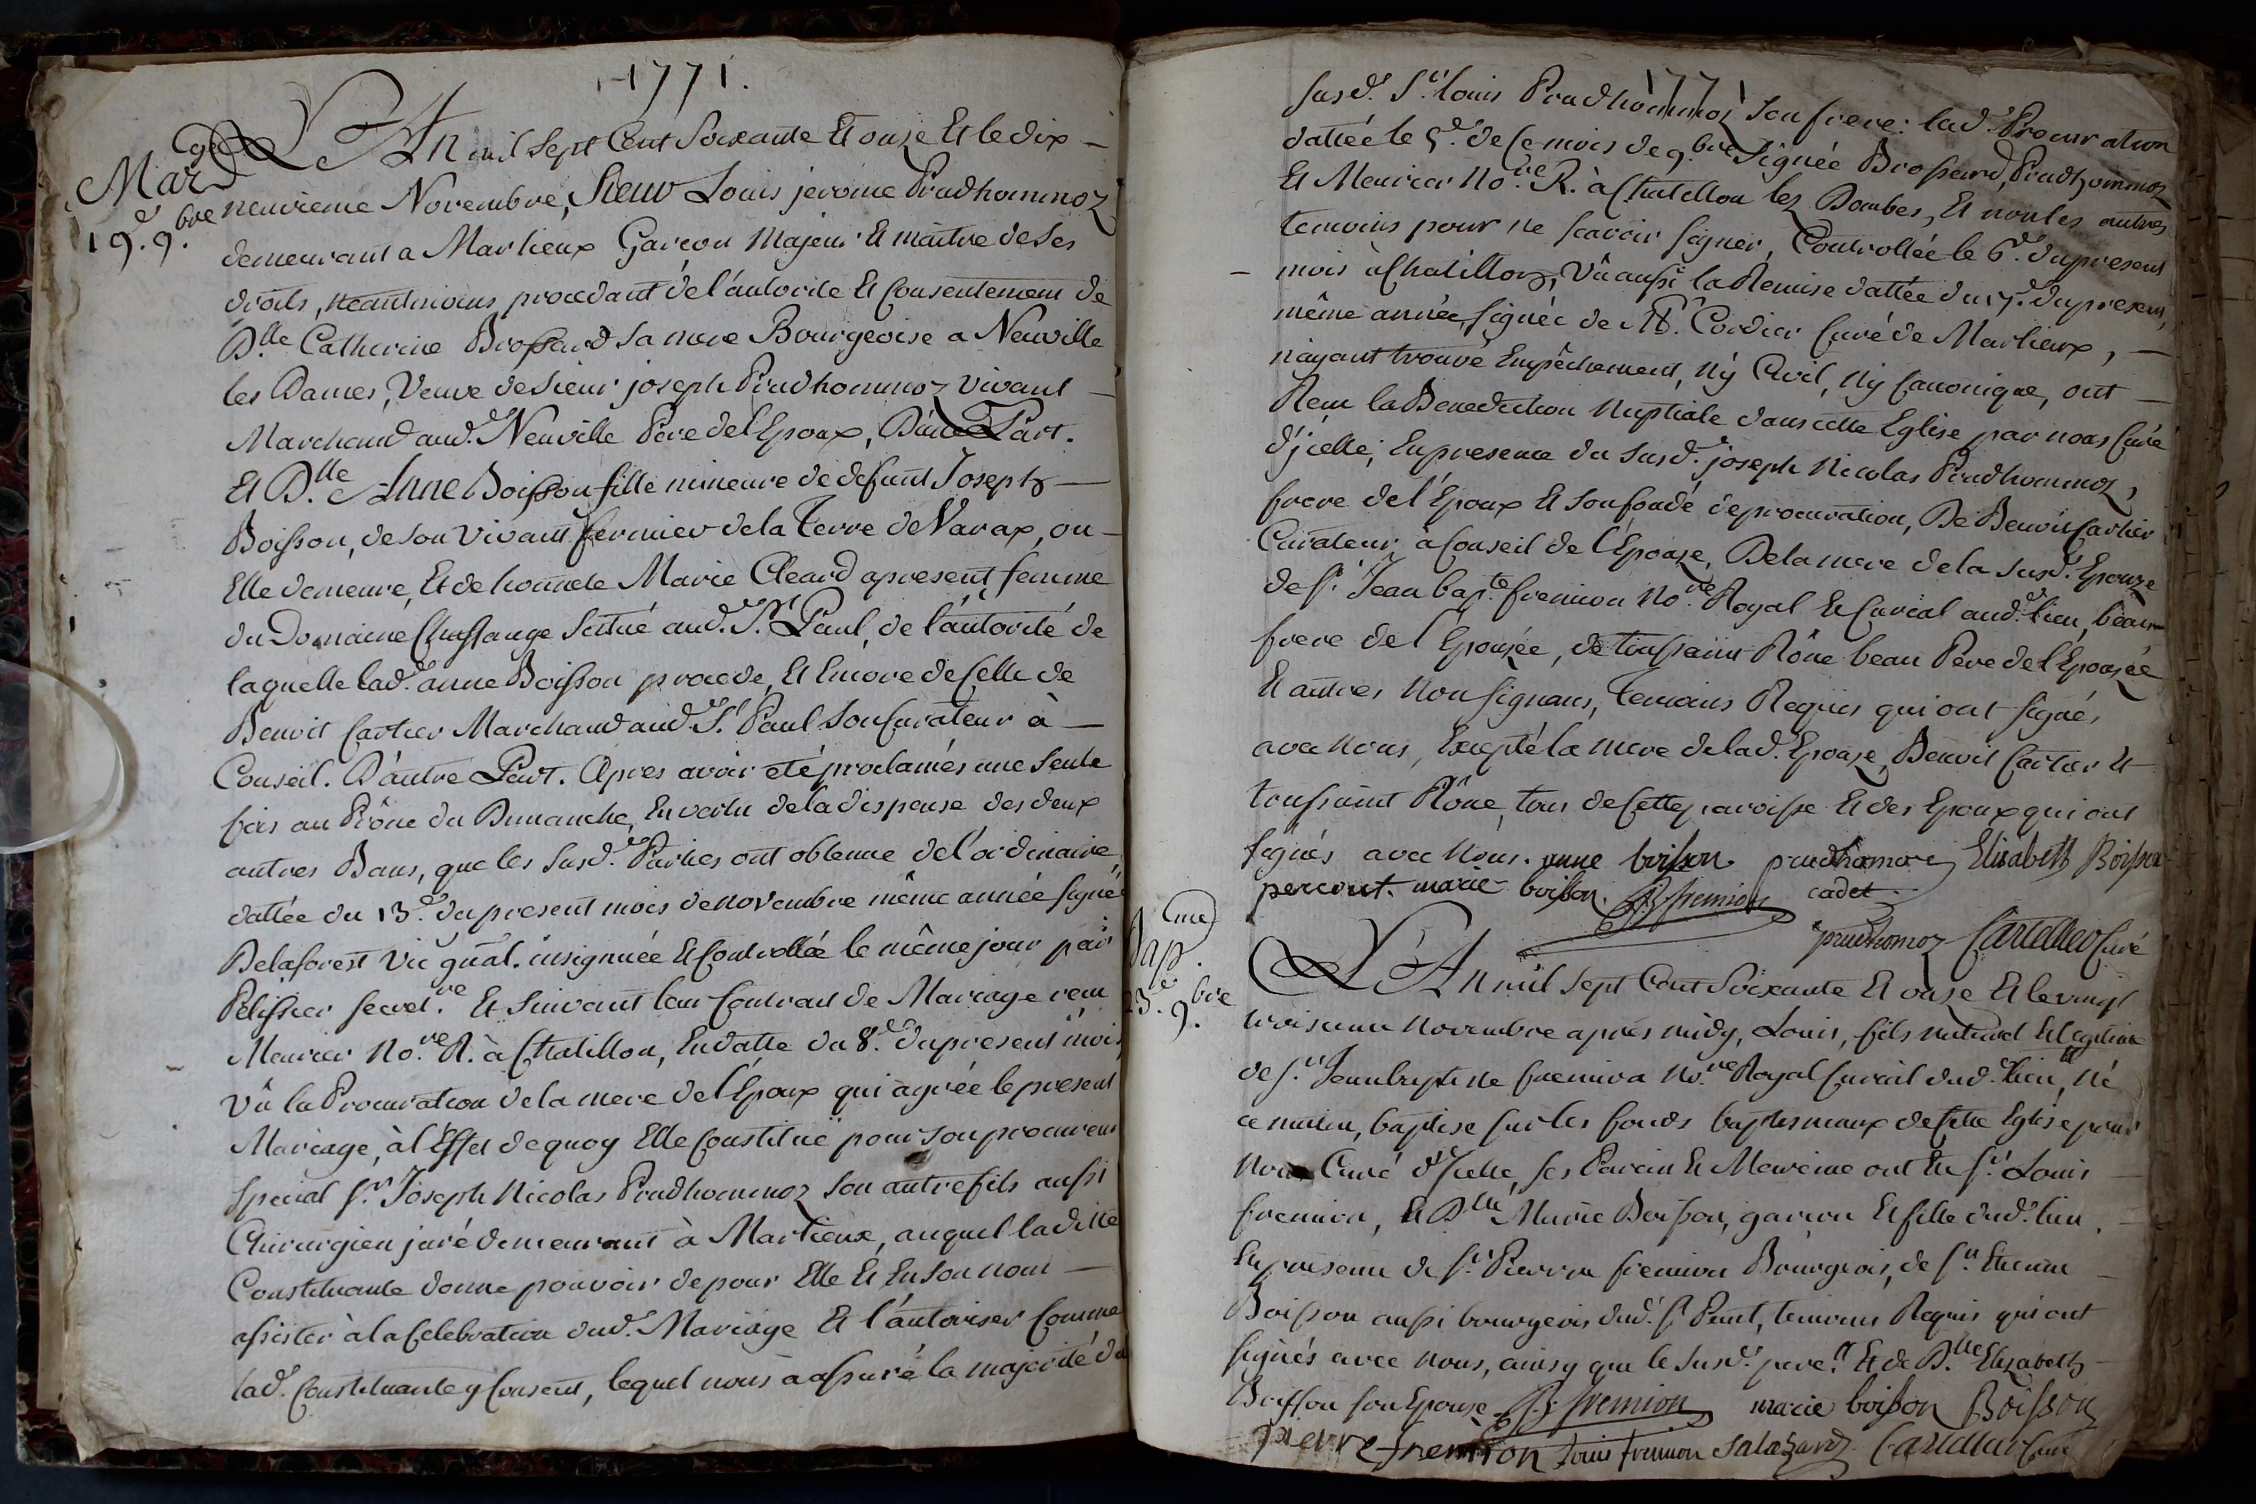 1771.
Mar.ge
19.e 9.bre
L'An mil Sept Cent Soixante Et onze Et le dix
neuvieme Novembre, Sieur Louis jerome Prudhommoz
demeurant a Marlieux Garcon Majeur Et maitre de Ses
droits, neantmoins procedant de l'autorité Et Consentement de
D.lle Catherine Brossard sa mere Bourgeoise a Neuville
les Dames, Veuve de Sieur joseph Prudhommoz vivant
Marchand aud.e Neuville Pere de l'Epoux, D'une Part.
Et D.lle Anne Boisson fille mineure de defunt Joseph
Boisson, de Son Vivant fermier de la Terre de Varax, ou
Elle demeure, Et de honnete Marie Cleard apresent femme
du Domaine scitué aud.e S.t Paul, de l'autorité de
laquelle lad.e anne Boisson procede, Et Encore de Celle de
Benoit Cartier Marchand aud.e S.t Paul Son Curateur à
Conseil. D'autre Part. Apres avoir eté proclamés une Seule
fois au Prône du Dimanche, En vertu de la dispense des deux
autres Bans, que les Susd.es Parties ont obtenue de l'ordinaire,
dattée du 13.e du present mois de novembre même année signé
Delaforest Vic gnal. insignuée Et Controllée le même jour par
Pelissier Secret.re Et Suivant leur Contract de Mariage reçu
Meurier No.re R. à Chatillon, En datte du 8.e du present mois
Vû la Procuration de la mere de l'Epoux qui agrée le present
Mariage, à l'Effet de quoy Elle Constitue pour Son procureur
Special S.r Joseph Nicolas Prudhommoz Son autre fils aussi
Chirurgien juré demeurant à Marlieux, auquel ladite
Constituante donne pouvoir de pour Elle Et En Son nom
assister à la Celebration dud.e Mariage Et l'autoriser Comme
lad.e Constituante y Consent, lequel nous a assuré la majorité du
1771
susd.e S.r louis Prudhommoz Son frere: lad.e Procuration
dattée le 5.e de Ce mois de 9.bre Signée Brossard, Prudhommoz
Et Meurier No.re R. à Chatillon les Dombes, Et non les autres
temoins pour ne scavoir signer, Controllée le 6.e du present
mois à Chatillon, Vû aussi la Remise dattée du 17.e du present,
même année, signée de M.r Cordier Curé de Marlieux,
n'ayant trouvé Empêchement, ny Civil, ny Canonique, ont
Reçu la Benediction Nuptiale dans cette Eglise par nous Curé
d'jcelle, En presence du Susd.e joseph Nicolas Prudhommoz,
frere de l'Epoux Et Son fondé de procuration, De Benoit Cartier
Curateur à Conseil de l'Epouze, De la mere de la Susd.e Epouze
de S.r Jean bap.te fremion No.re Royal Et Curial aud.e lieu, beau
frere de l'Epouzée, de toussaint Rône beau Pere de l'Epouzée
Et autres Non signans, temoins Requis qui ont signés
avec Nous, Excepté la mere de lad.e Epouze, Benoit Cartier Et
toussaint Rône, tous de Cette paroisse Et des Epoux qui ont
signés avec Nous. anne boisson prudhomoz Elisabeth Boisson
percout. marie boisson. JB fremion cadet
prudhomoz Cartellier Curé
Bap.me
le
23. 9.bre
L'An mil Sept Cent Soixante Et onze Et le vingt
troisieme Novembre après midy, Louis, fils naturel Et legitime
de S.r Jeanbaptiste fremion No.re Royal Curial dud.e lieu, Né
ce matin, baptisé sur les fonds baptismaux de Cette Eglise par
Nous Curé d'Icelle, Ses Parein Et Mareine ont Eté S.r Louis
fremion, Et D.lle Marie Boisson, garcon Et fille dud.e lieu.
En presence de S.r Pierre fremion Bourgeois, de S.r Etienne
Boisson aussi bourgeois dud.e S.t Paul, temoins Requis qui ont
signés avec Nous, ainsy que le Susd.e pere. Et de D.lle Elizabeth
Boisson son Epouse JB fremion marie boisson Boisson
pierre fremion Louis fremion Salazard Cartellier Curé